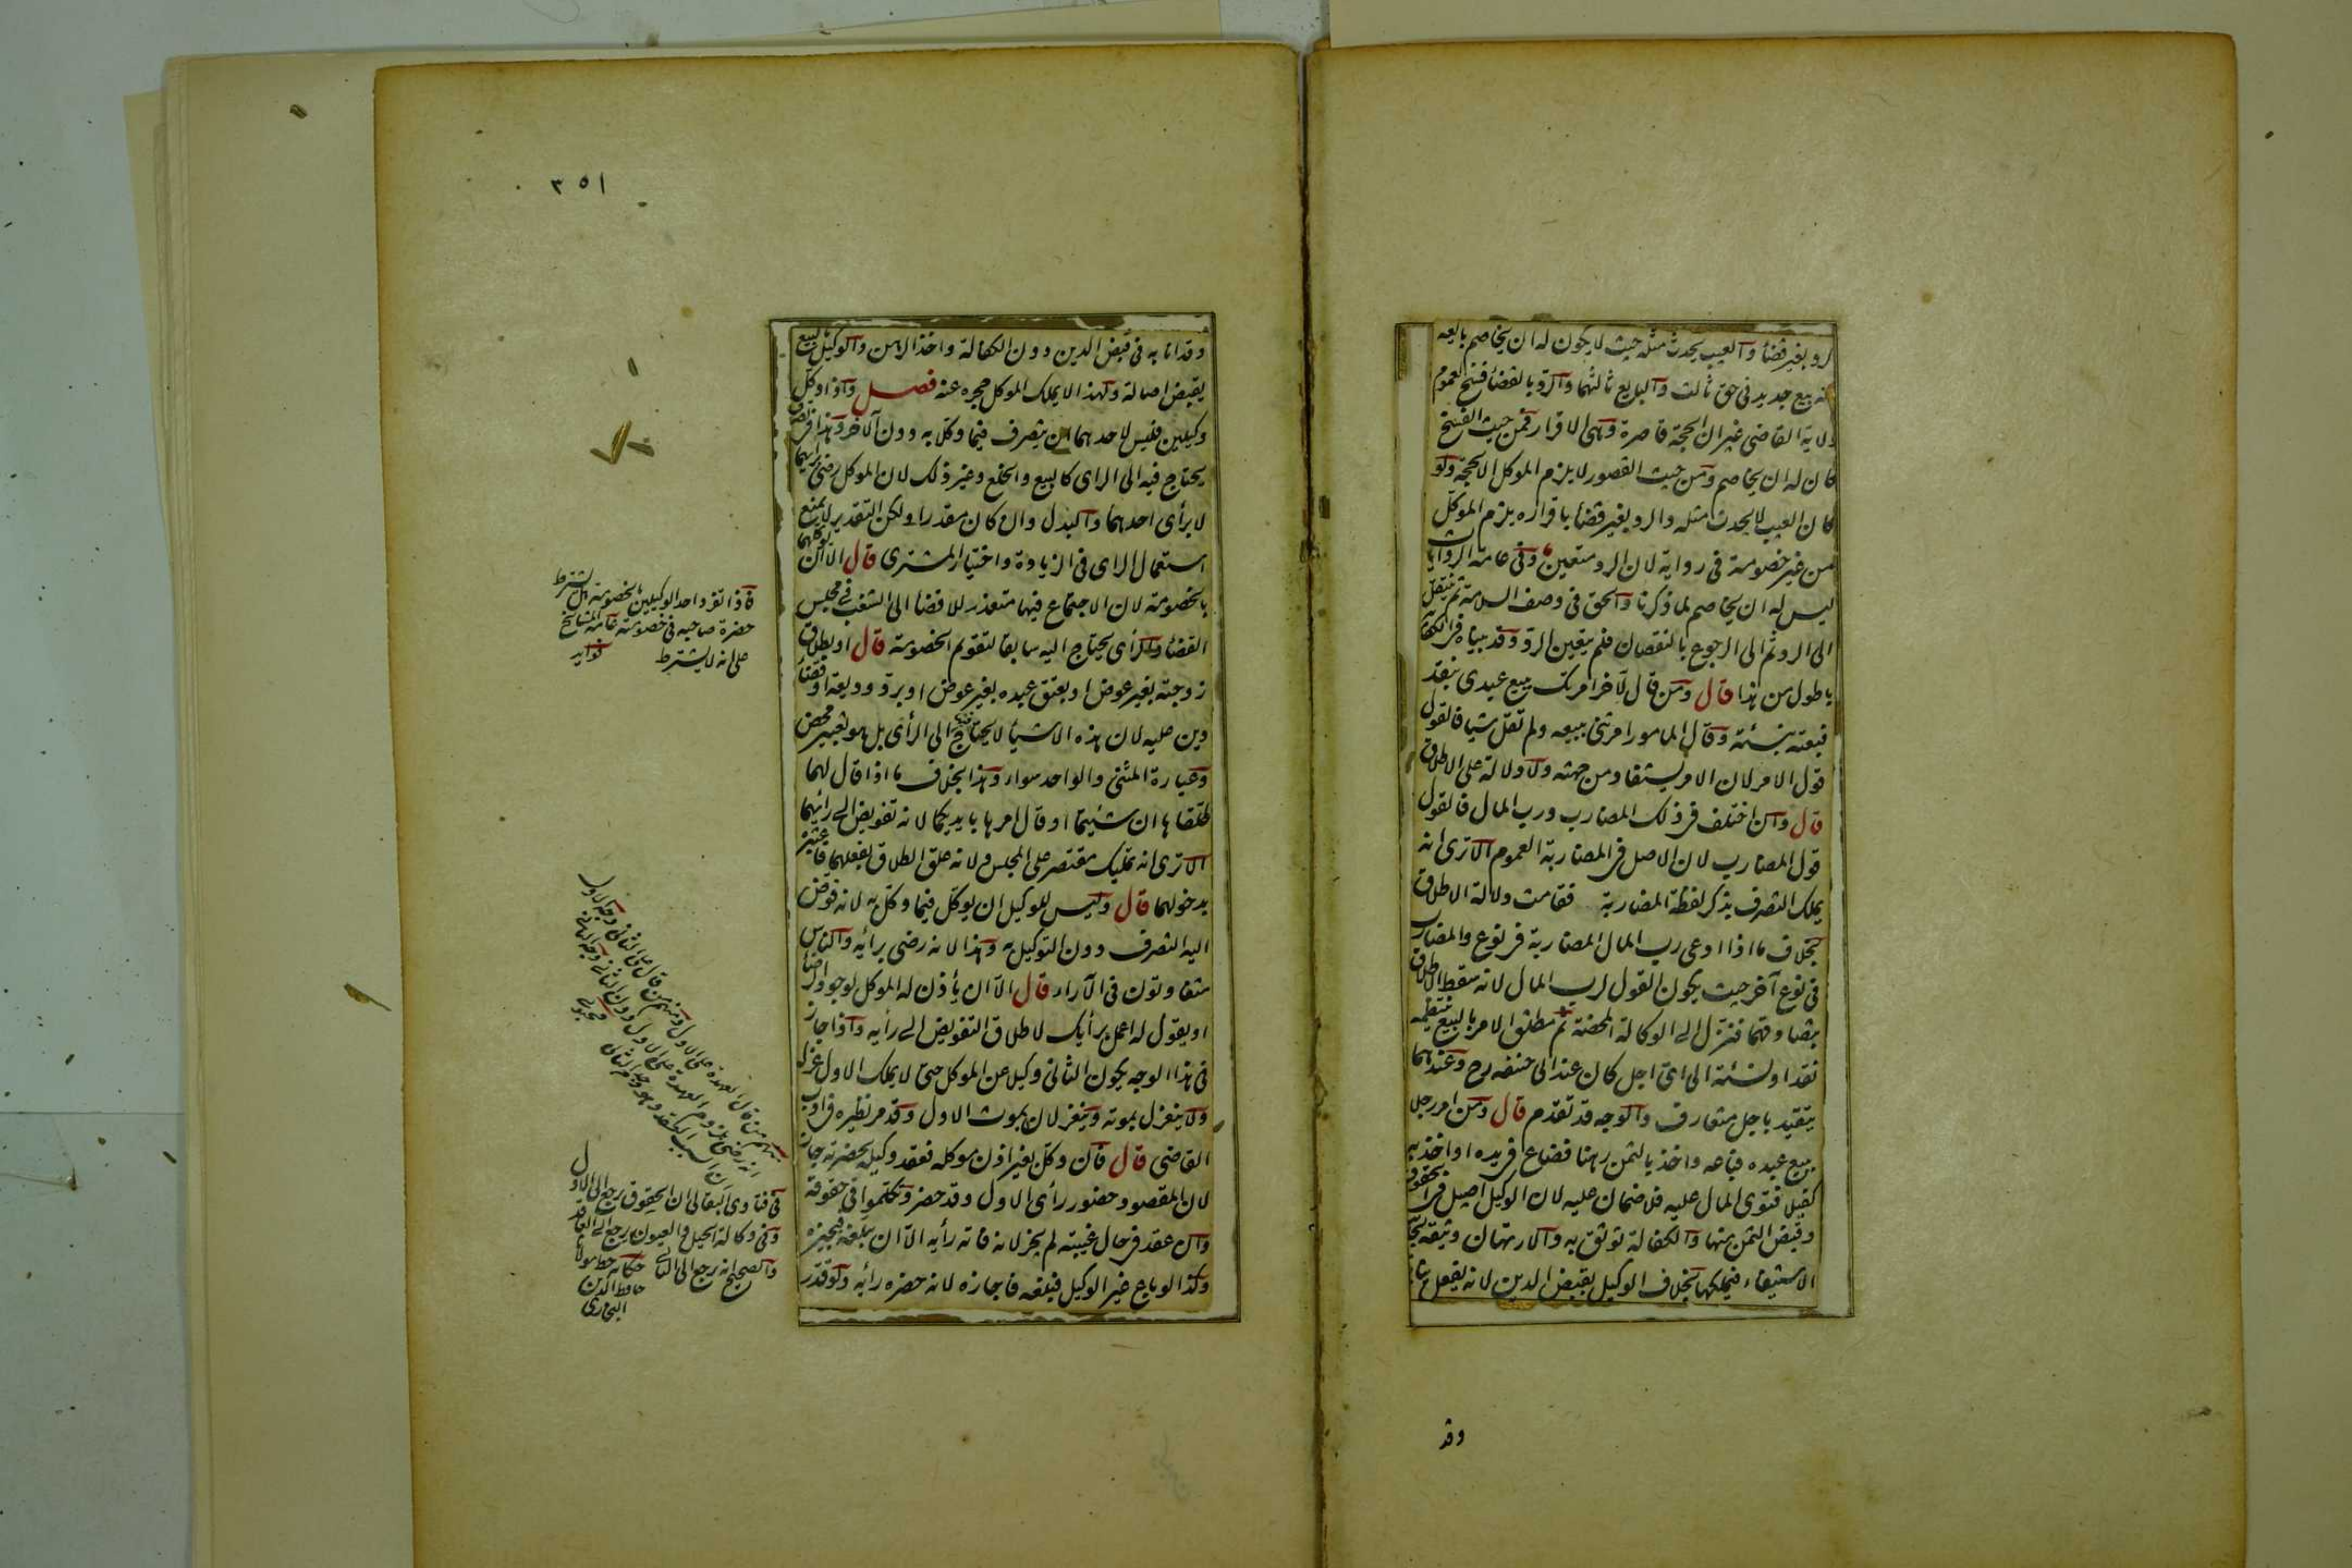 الرد بغير قضاء والعيب يحدث مثله حيث لا يكون له ان يخاصم بائعه
لانه بيع جديد في حق ثالث والبايع ثالثهما والرد بالقضاء فسخ لعموم
ولاية القاضى غير ان الحجة قاصرة وهى الاقرار فمن حيث الفسخ
كان له ان يخاصم ومن حيث القصور لا يلزم الموكل الا بحجة ولو
كان العيب لا يحدث مثله والرد بغير قضاء باقراره يلزم الموكل
من غير خصومة في رواية لان الرد متعين وفى عامة الروايات
ليس له ان يخاصم لما ذكرنا والحق في وصف السلامة ثم ينتقل
الى الرد ثم الى الرجوع بالنقصان فلم يتعين الرد وقد بيناه في الكفاية
باطول من هذا قال ومن قال لآخر امرتك ببيع عبدى بنقد
فبعته بنسئة وقال المامور امرتنى ببيعه ولم تقل شيا فالقول
قول الامر لان الامر يستفاد من جهته ولا دلالة على الاطلاق
قال وان اختلف في ذلك المضارب ورب المال فالقول
قول المضارب لان الاصل في المضاربة العموم الا ترى انه
يملك التصرف بذكر لفظة المضاربة فقامت دلالة الاطلاق
بخلاف ما اذا ادعى رب المال المضاربة في نوع والمضارب
في نوع آخر حيث يكون القول لرب المال لانه سقط الاطلاق
بتصادقهما فنزل الى الوكالة المحضة ثم مطلق الامر بالبيع ينتظمه
نقدا ونسئة الى اى اجل كان عند ابى حنيفه رح وعندهما
يتقيد باجل متعارف والوجه قد تقدم قال ومن امر رجلا
ببيع عبده فباعه واخذ بالثمن رهنا فضاع في يده او اخذ به
كفيلا فتوى المال عليه فلا ضمان عليه لان الوكيل اصيل في الحقوق
وقبض الثمن منها والكفالة توثق به والارتهان وثيقة لجانب
الاستيفاء فيملكهما بخلاف الوكيل بقبض الدين لانه يفعل نيابة
وقد
٣٥١
وقد انابه في قبض الدين دون الكفالة واخذ الرهن والوكيل بالبيع
يقبض اصالة ولهذا لا يملك الموكل حجره عنه فصل واذا وكل
وكيلين فليس لاحدهما ان يتصرف فيما وكلا به دون الآخر وهذا في تصرف
يحتاج فيه الى الراى كالبيع والخلع وغير ذلك لان الموكل رضى برايهما
لا برأى احدهما والبدل وان كان مقدرا ولكن التقدير لا يمنع
استعمال الراى في الزيادة واختيار المشترى قال الا ان يوكلهما
بالخصومة لان الاجتماع فيها متعذر للافضاء الى الشغب في مجلس
القضاء والرأى يحتاج اليه سابقا لتقويم الخصومة قال او بطلاق
زوجته بغير عوض او بعتق عبده بغير عوض او برد وديعة او قضاء
دين عليه لان هذه الاشياء لا يحتاج فيها الى الرأى بل هو تعبير محض
وعبارة المثنى والواحد سواء وهذا بخلاف ما اذا قال لهما
طلقاها ان شئتما او قال امرها بايديكما لانه تفويض الى رائيهما
الا ترى انه تمليك مقتصر على المجلس ولانه علق الطلاق بفعلهما فاعتبر
بدخولهما قال وليس للوكيل ان يوكل فيما وكل به لانه فوض
اليه التصرف دون التوكيل به وهذا لانه رضى برأيه والناس
متفاوتون في الآراء قال الا ان يأذن له الموكل لوجود الرضا
او يقول له اعمل برأيك لاطلاق التفويض الى رأيه واذا جاز
في هذا الوجه يكون الثانى وكيلا عن الموكل حتى لا يملك الاول عزله
ولا ينعزل بموته وينعزلان بموت الاول وقد مر نظيره في ادب
القاضى قال فان وكل بغير اذن موكله فعقد وكيله بحضرته جاز
لان المقصود حضور رأى الاول وقد حضر وتكلموا في حقوقه
وان عقد في حال غيبته لم يجز لانه فاته رأيه الا ان يبلغه فيجيزه
وكذا لو باع غير الوكيل فبلغه فاجازه لانه حضره رأيه ولو قدر
فاذا تفرد احد الوكيلين بالخصومة هل يشترط
حضرة صاحبه في خصومته عامة المشايخ
على انه لا يشترط فوايد
منهم من قال العهدة على الاول ومنهم من قال على الثانى وجه الاول
انه رضى بلزوم العهدة على الاول دون الثانى وجه الثانى
ان السبب العقد وهو وجد من الثانى
في فتاوى البقالى ان الحقوق ترجع الى الاول
وفى وكالة الحيل والعيون ترجع الى العاقد
والصحيح انه يرجع الى الثانى حكاية خط مولانا
حافظ الدين
البخارى